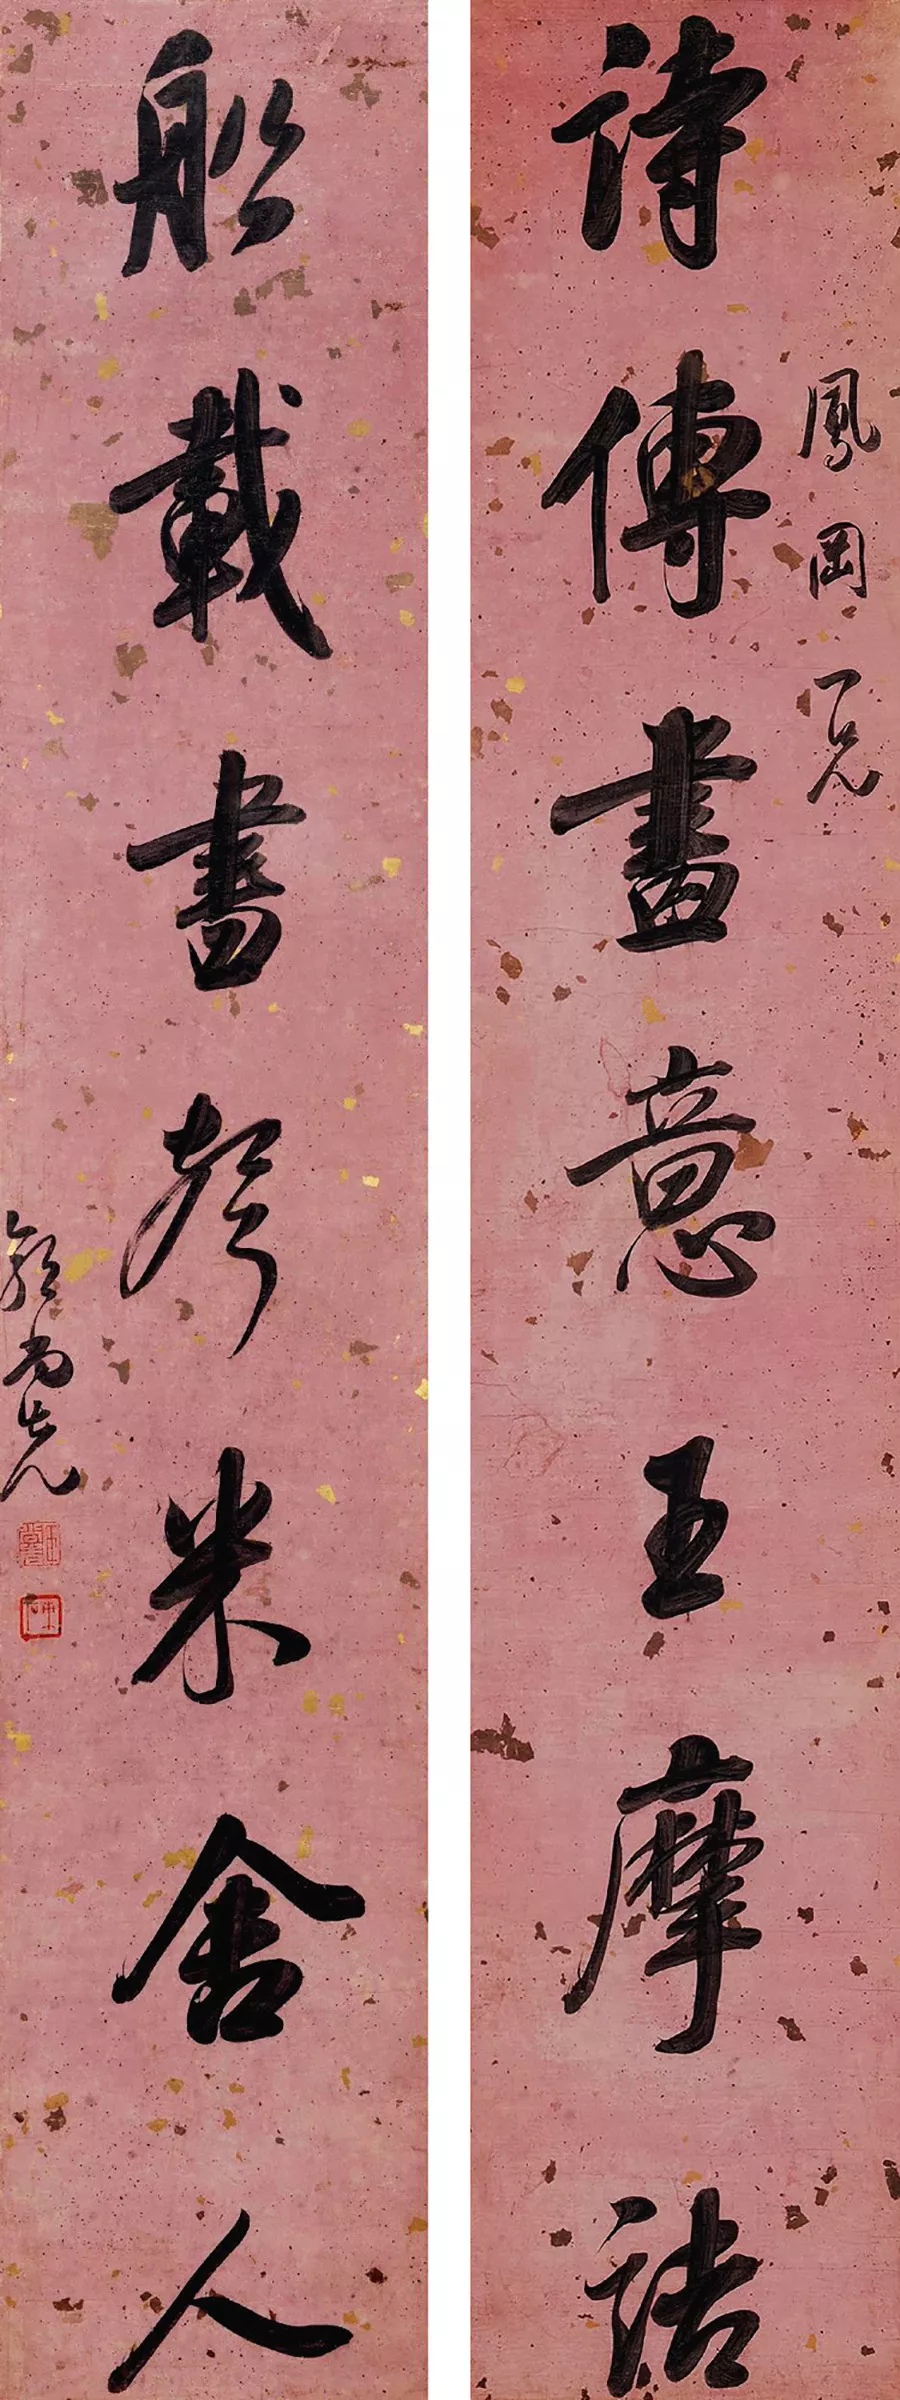 鳳岡兄
詩傳畫意王摩詰
船載書聲米舍人
郭尚先